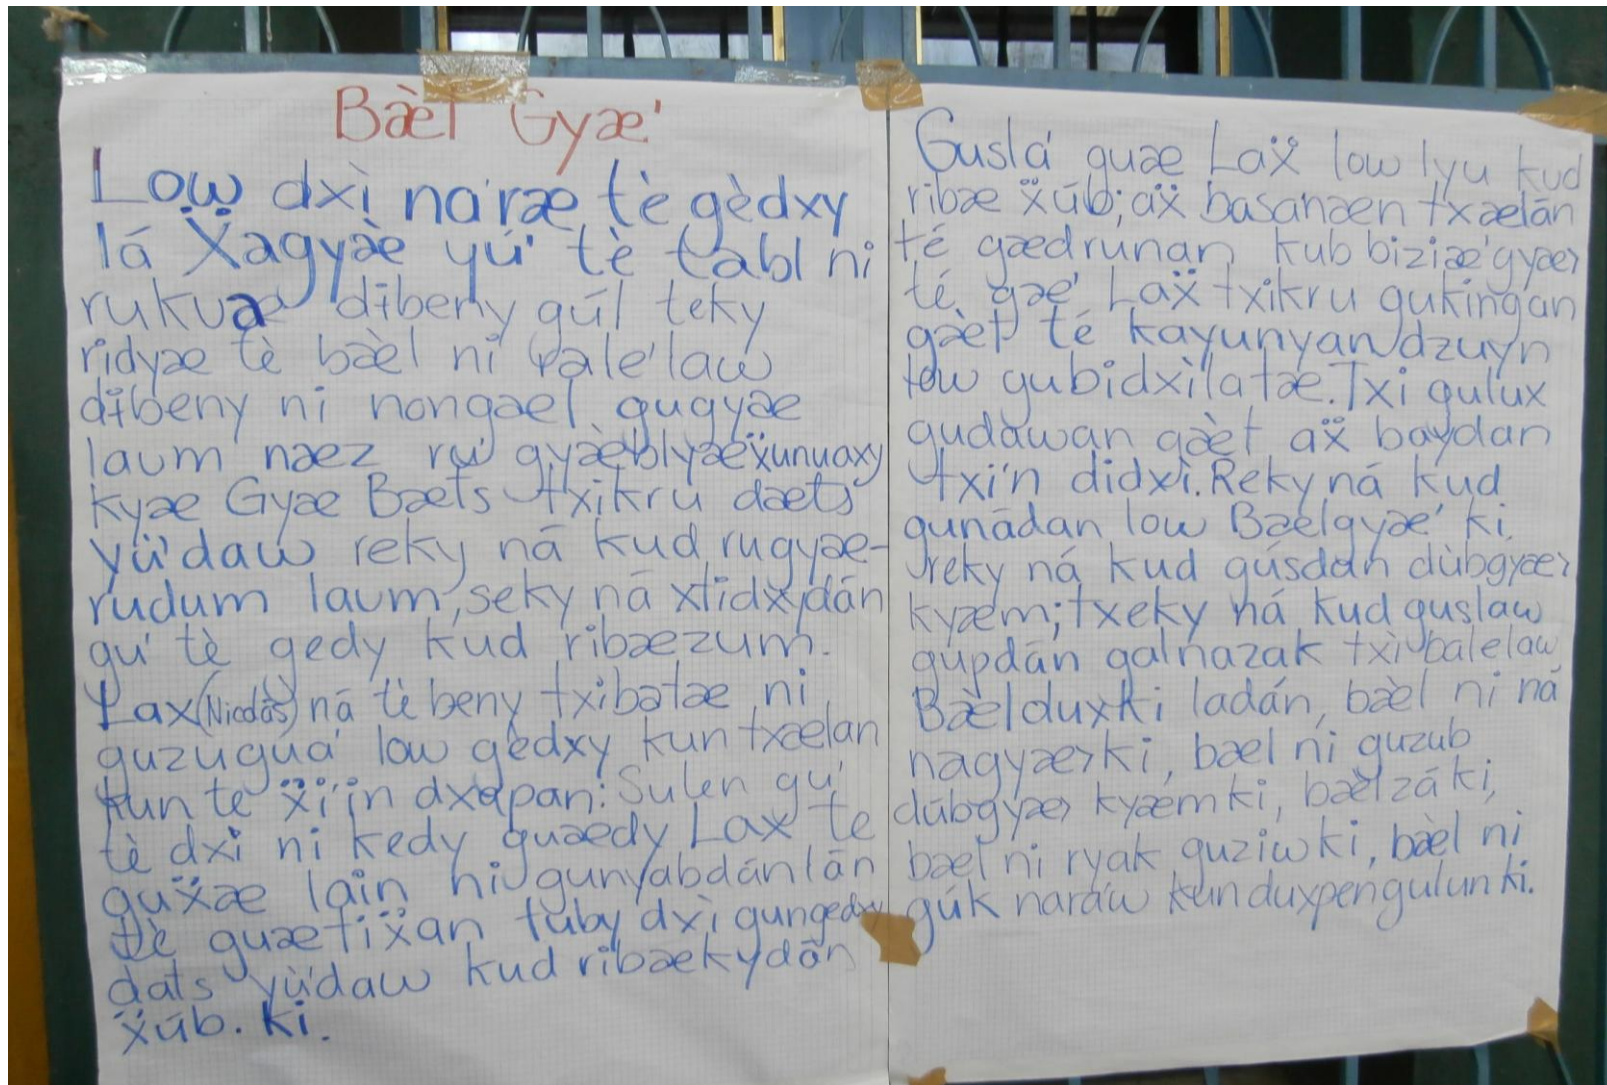 Bæ̀l Gyæ'
Low dxì na'ræ tè gèdxy
lá Ẍagyæ̀e yú' tè tabl ni
rukuæ dɨbeny gúl teky
ridyæ tè bæ̀l ni bale'law
dɨbeny ni nongæl gugyæe
laum næz ru' gyæ̀blyæẍunuaxy
kyæ Gyæ Bæts txikru dæts
yù'daw reky ná kud rugyæ-
rudum laum, seky ná xtidxydán
gu' tè gedy kud ribæzum.
Lax (Nicolàs) ná tè beny txibatæ ni
guzugua' low gèdxy kun txælan
kun te ẍi'in dxapan: Sulen gu'
tè dxi ni kedy guædy Lax te
guẍæ lain ni gunyabdán lán
tè guætiẍan tuby dxì gungedxy
dats yù'daw kud ribækydán
ẍúb. ki.
Guslá guæ Laẍ low lyu kud
ribæ ẍúb; aẍ basanæn txælán
té gædrunan kub biziæ'gyæ
té gæ' Laẍ txikru gukingan
gæ̀t té kayunyan dzuyn
low gubidxìlatæ. Txi gulux
gudàwan gæ̀t aẍ baydan
txi'n didxì. Reky ná kud
gunádan low Bælgyæ' ki,
reky ná kud gúsdán dùbgyæ
kyæm; txeky ná kud guslaw
gupdán galnazak txì balelaw
Bæ̀lduxki ladán, bæ̀l ni ná
nagyæki, bæl ni guzub
dùbgyæ kyæmki, bæ̀lzá ki,
bæl ni ryak guziwki, bæ̀l ni
gúk naráw kun duxpengulun ki.